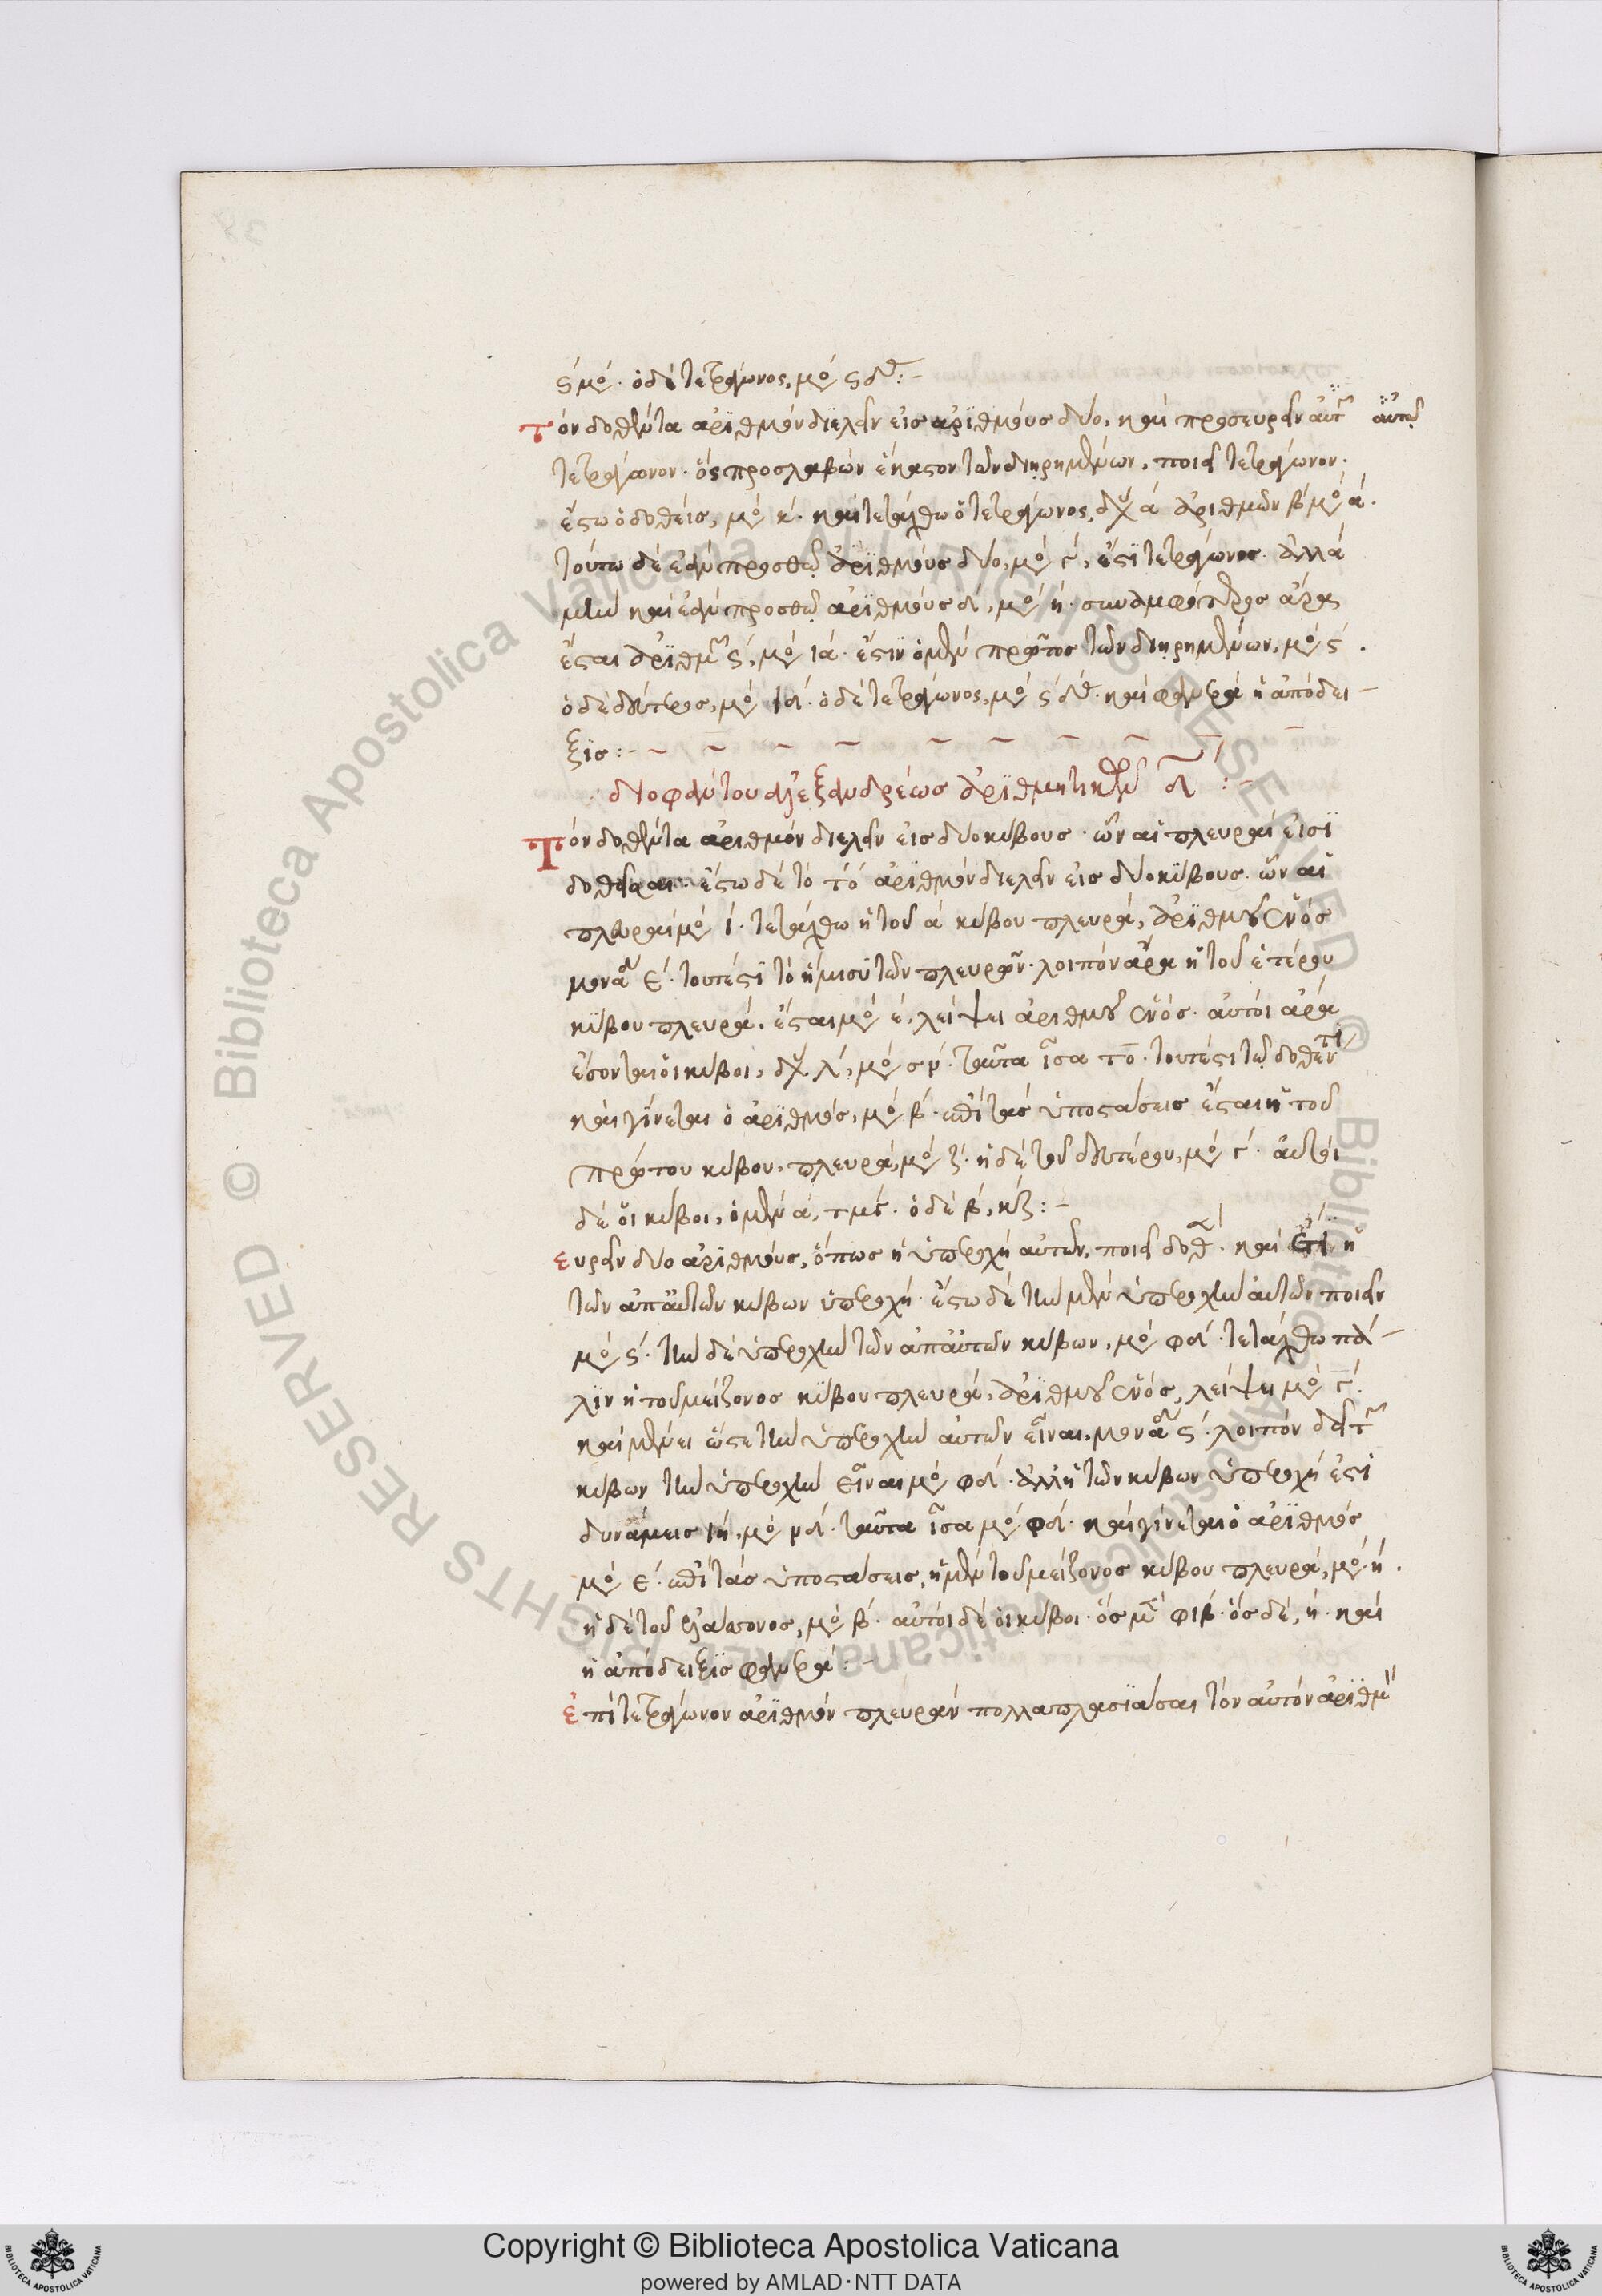 ϛ´ μο´. ὁ δὲ τετράγωνος, μο´ ϛδ´:-
Τὸν δοθέντα ἀριθμὸν διελεῖν εἰς ἀριθμοὺς δύο, καὶ προσευρεῖν αὐτ αὐτοῖς
τετράγωνον. ὃς προσλαβὼν ἕκαστον τῶν διῃρημένων, ποιεῖ τετράγωνον.
ἔστω ὁ δοθεὶς, μο´ κ´. καὶ τετάχθω ὁ τετράγωνος, δυ α´ ἀριθμῶν β´ μο´ α´.
τούτω δὲ ἐὰν προσθῶ ἀριθμοὺς δύο, μο´ γ´, ἔστι τετράγωνος. ἀλλὰ
μὴν καὶ ἐὰν προσθῶ ἀριθμοὺς δ´, μο´ η´. συναμφότερος ἄρα
ἔσται ἀριθμ ϛ´, μο´ ια´. ἔστιν ὁ μὲν πρῶτος τῶν διῃρημένων, μο´ ϛ´.
ὁ δὲ δεύτερος, μο´ ιδ´. ὁ δὲ τετράγωνος, μο´ ϛ´ δ´. καὶ φανερὰ ἡ ἀπόδει-
ξις:-
διοφάντου ἀλεξανδρέως ἀριθμητικῶν δ:
Τὸν δοθέντα ἀριθμὸν διελεῖν εἰς δύο κύβους. ὧν αἱ πλευραί εἰσι
δοθεῖσαι. ἔστω δὲ τὸ τ´ο´ ἀριθμὸν διελεῖν εἰς δύο κύβους. ὧν αἱ
πλευραὶ μο´ ι´. τετάχθω ἡ τοῦ α´ κύβου πλευρά, ἀριθμοῦ ἑνός
μονα ε´. τουτέστι τὸ ἥμισυ τῶν πλευρῶν. λοιπὸν ἄρα ἡ τοῦ ἑτέρου
κύβου πλευρά. ἔσται μο´ ε´. λείψει ἀριθμοῦ ἑνός. αὐτοὶ ἄρα
ἔσονται οἱ κύβοι, δυ λ´, μο´ σν´. ταῦτα ἴσα το. τουτέστι τῷ δοθέντι
καὶ γίνεται ὁ ἀριθμός, μο´ β´. ἐπὶ τὰς ὑποστάσεις ἔσται ἡ τοῦ
πρώτου κύβου, πλευρά, μο´ ζ´. ἡ δὲ τοῦ δευτέρου, μο´ γ´. αὐτοὶ
δὲ οἱ κύβοι, ὁ μὲν α´, τμγ´. ὁ δὲ β´, κζ´:-
ευρεῖν δύο ἀριθμοὺς, ὅπως ἡ ὑπεροχὴ αὐτῶν, ποιεῖ δοθ. καὶ ἔτι ἡ
τῶν ἀπ᾽ αὐτῶν κύβων ὑπεροχή. ἔστω δὲ τὴν μὲν ὑπεροχὴν αὐτῶν ποιεῖν
μο´ ϛ´. τὴν δὲ ὑπεροχὴν τῶν ἀπ᾽ αὐτῶν κύβων, μο´ φδ´. τετάχθω πά-
λιν ἡ τοῦ μείζονος κύβου πλευρά, ἀριθμοῦ ἑνός, λείψει μο´ γ´.
καὶ μένει ὥστε τὴν ὑπεροχὴν αὐτῶν εἶναι, μονα ϛ´. λοιπὸν δεῖ τ
κύβων τὴν ὑπεροχὴν εἶναι μο´ φδ´. ἀλλ᾽ ἡ τῶν κύβων ὑπεροχή ἐστι
δυνάμεις ιη´, μο´ νδ´. ταῦτα ἴσα μο´ φδ´. καὶ γίνεται ὁ ἀριθμός
μο´ ε´. ἐπὶ τὰς ὑποστάσεις, ἡ μὲν τοῦ μείζονος κύβου πλευρά, μο´ η´.
ἡ δὲ τοῦ ἐλάττονος, μο´ β´. αὐτοὶ δὲ οἱ κύβοι. ὃς μ φιβ´. ὃς δὲ, η´. καὶ
ἡ ἀπόδειξις φανερά:-
ἐπὶ τετράγωνον ἀριθμὸν πλευρὰν πολλαπλασιάσαι τὸν αὐτὸν ἀριθμ
Copyright © Biblioteca Apostolica Vaticana
powered by AMLAD·NTT DATA